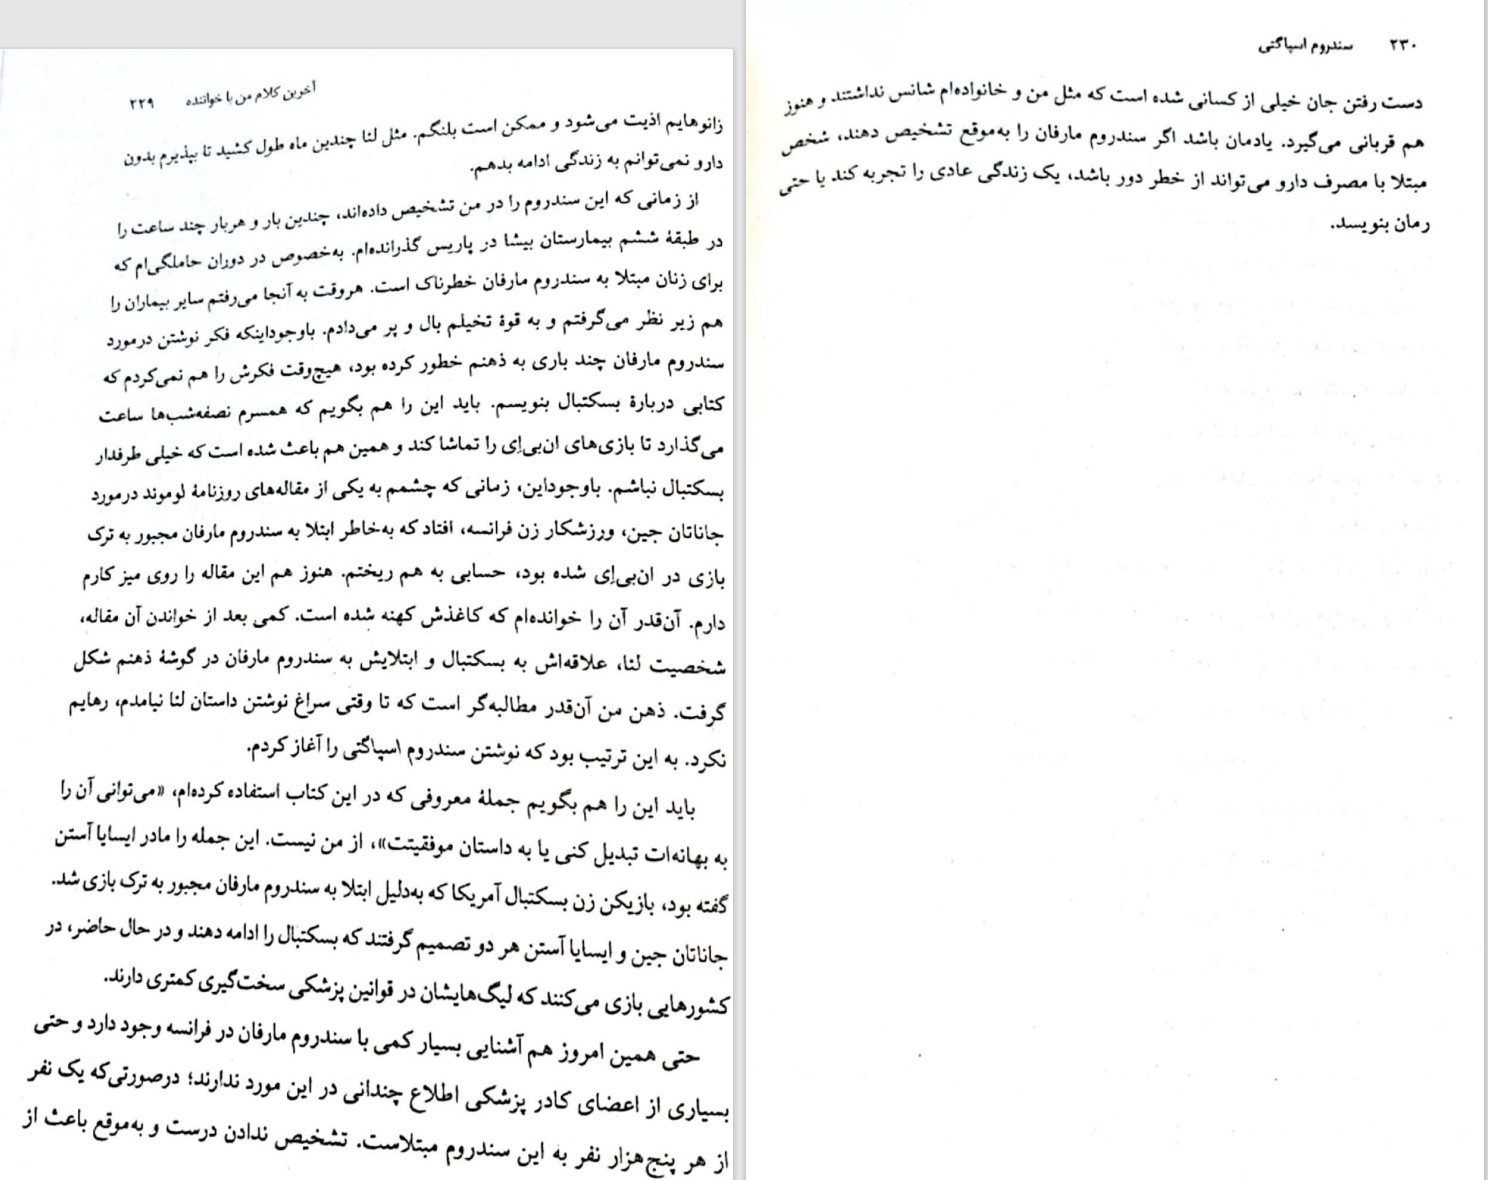 آخرین کلام من با خواننده ۲۲۹
زانوهایم اذیت می‌شود و ممکن است بلنگم. مثل لنا چندین ماه طول کشید تا بپذیرم بدون
دارو نمی‌توانم به زندگی ادامه بدهم.
از زمانی که این سندروم را در من تشخیص داده‌اند، چندین بار و هربار چند ساعت را
در طبقهٔ ششم بیمارستان بیشا در پاریس گذرانده‌ام. به‌خصوص در دوران حاملگی‌ام که
برای زنان مبتلا به سندروم مارفان خطرناک است. هروقت به آنجا می‌رفتم سایر بیماران را
هم زیر نظر می‌گرفتم و به قوهٔ تخیلم بال و پر می‌دادم. باوجوداینکه فکر نوشتن درمورد
سندروم مارفان چند باری به ذهنم خطور کرده بود، هیچ‌وقت فکرش را هم نمی‌کردم که
کتابی دربارهٔ بسکتبال بنویسم. باید این را هم بگویم که همسرم نصفه‌شب‌ها ساعت
می‌گذارد تا بازی‌های ان‌بی‌اِی را تماشا کند و همین هم باعث شده است که خیلی طرفدار
بسکتبال نباشم. باوجوداین، زمانی که چشمم به یکی از مقاله‌های روزنامهٔ لوموند درمورد
جاناتان جین، ورزشکار زن فرانسه، افتاد که به‌خاطر ابتلا به سندروم مارفان مجبور به ترک
بازی در ان‌بی‌اِی شده بود، حسابی به هم ریختم. هنوز هم این مقاله را روی میز کارم
دارم. آن‌قدر آن را خوانده‌ام که کاغذش کهنه شده است. کمی بعد از خواندن آن مقاله،
شخصیت لنا، علاقه‌اش به بسکتبال و ابتلایش به سندروم مارفان در گوشهٔ ذهنم شکل
گرفت. ذهن من آن‌قدر مطالبه‌گر است که تا وقتی سراغ نوشتن داستان لنا نیامدم، رهایم
نکرد. به این ترتیب بود که نوشتن سندروم اسپاگتی را آغاز کردم.
باید این را هم بگویم جملهٔ معروفی که در این کتاب استفاده کرده‌ام، «می‌توانی آن را
به بهانه‌ات تبدیل کنی یا به داستان موفقیتت»، از من نیست. این جمله را مادر ایسایا آستن
گفته بود، بازیکن زن بسکتبال آمریکا که به‌دلیل ابتلا به سندروم مارفان مجبور به ترک بازی شد.
جاناتان جین و ایسایا آستن هر دو تصمیم گرفتند که بسکتبال را ادامه دهند و در حال حاضر، در
کشورهایی بازی می‌کنند که لیگ‌هایشان در قوانین پزشکی سخت‌گیری کمتری دارند.
حتی همین امروز هم آشنایی بسیار کمی با سندروم مارفان در فرانسه وجود دارد و حتی
بسیاری از اعضای کادر پزشکی اطلاع چندانی در این مورد ندارند؛ درصورتی‌که یک نفر
از هر پنج‌هزار نفر به این سندروم مبتلاست. تشخیص ندادن درست و به‌موقع باعث از
۲۳۰ سندروم اسپاگتی
دست رفتن جان خیلی از کسانی شده است که مثل من و خانواده‌ام شانس نداشتند و هنوز
هم قربانی می‌گیرد. یادمان باشد اگر سندروم مارفان را به‌موقع تشخیص دهند، شخص
مبتلا با مصرف دارو می‌تواند از خطر دور باشد، یک زندگی عادی را تجربه کند یا حتی
رمان بنویسد.